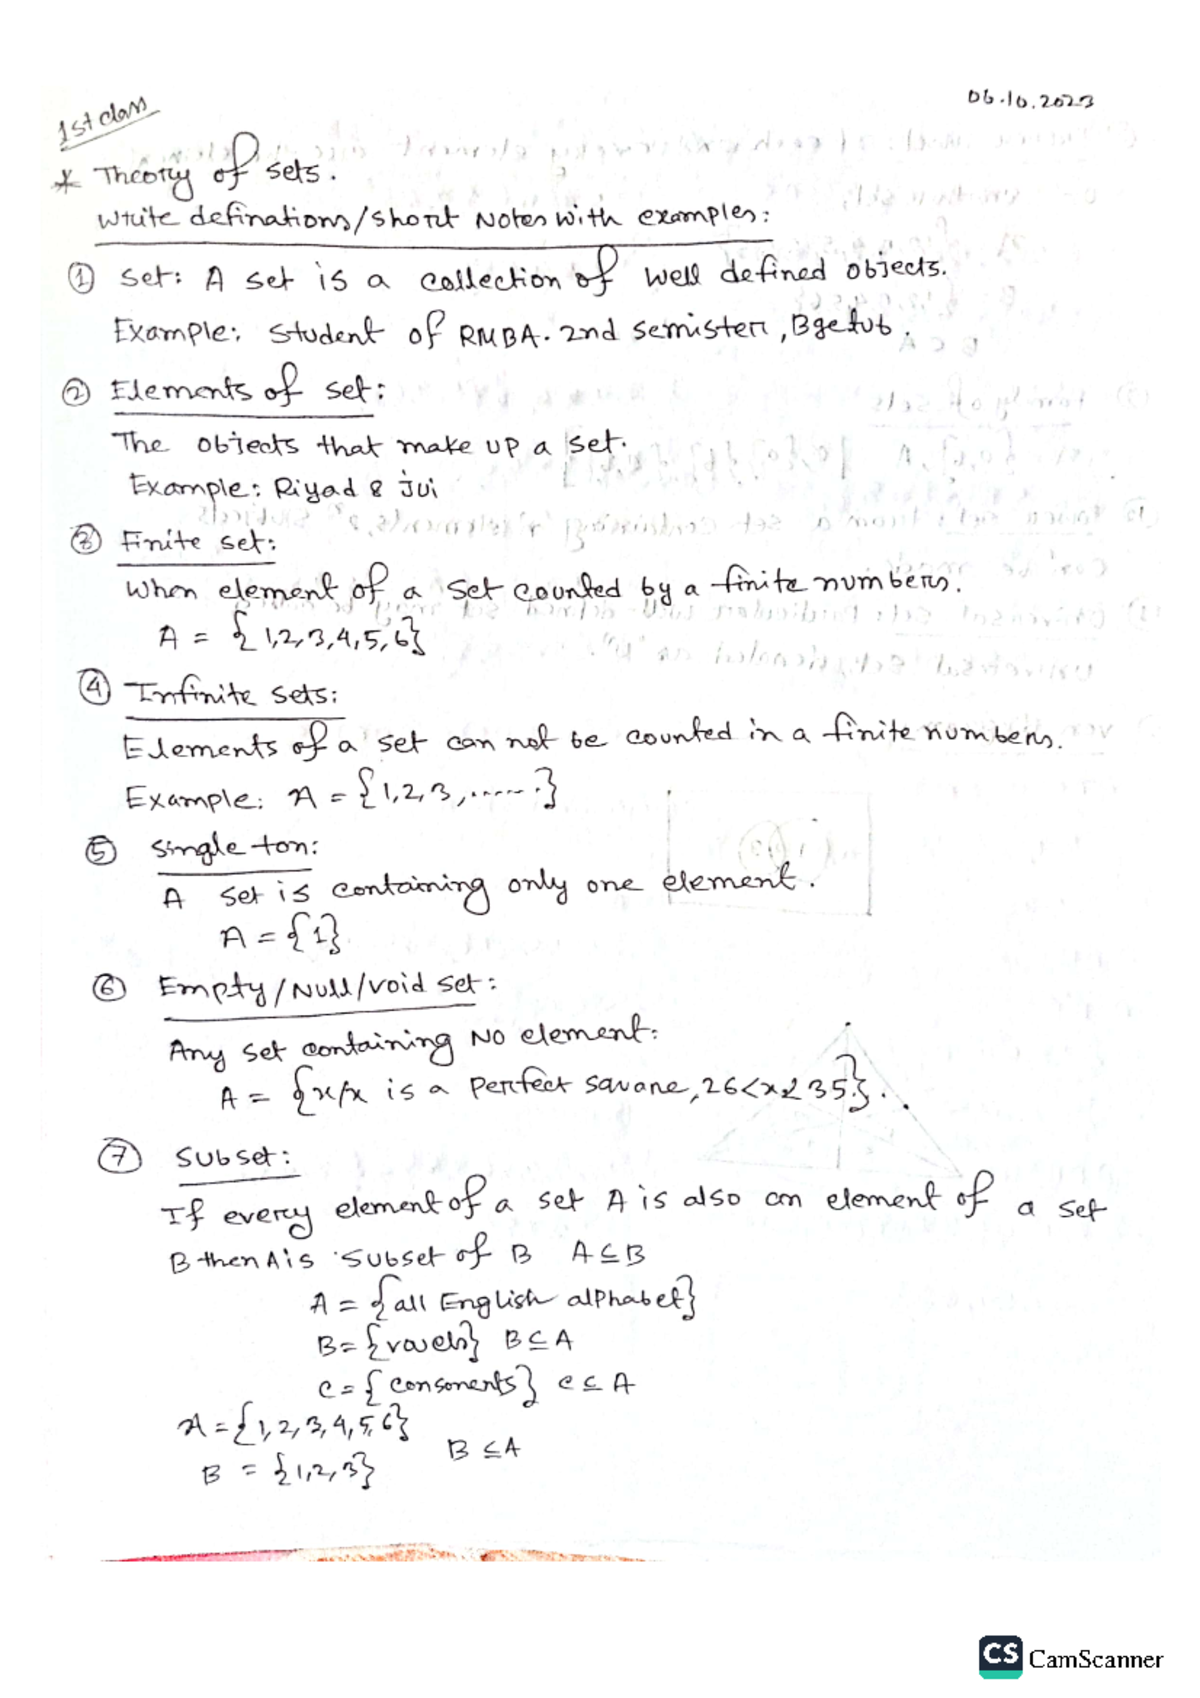 1st class
06.10.2023
* Theory of sets.
Write definations/short Notes with examples:
① Set: A set is a collection of well defined objects.
Example: Student of RMBA. 2nd semister, Bgetub.
② Elements of set:
The objects that make up a set.
Example: Riyad & Jui
③ Finite set:
When element of a set counted by a finite numbers.
A = {1,2,3,4,5,6}
④ Infinite sets:
Elements of a set can not be counted in a finite numbers.
Example: A = {1,2,3,......}
⑤ Single ton:
A set is containing only one element.
A = {1}
⑥ Empty/Null/void set:
Any set containing No element:
A = {x/x is a perfect savane, 26<x<35}.
⑦ Subset:
If every element of a set A is also an element of a set
B then A is subset of B A ⊆ B
A = {all English alphabet}
B = {vowels} B ⊆ A
C = {consonents} C ⊆ A
A = {1,2,3,4,5,6}
B = {1,2,3} B ⊆ A
CS CamScanner